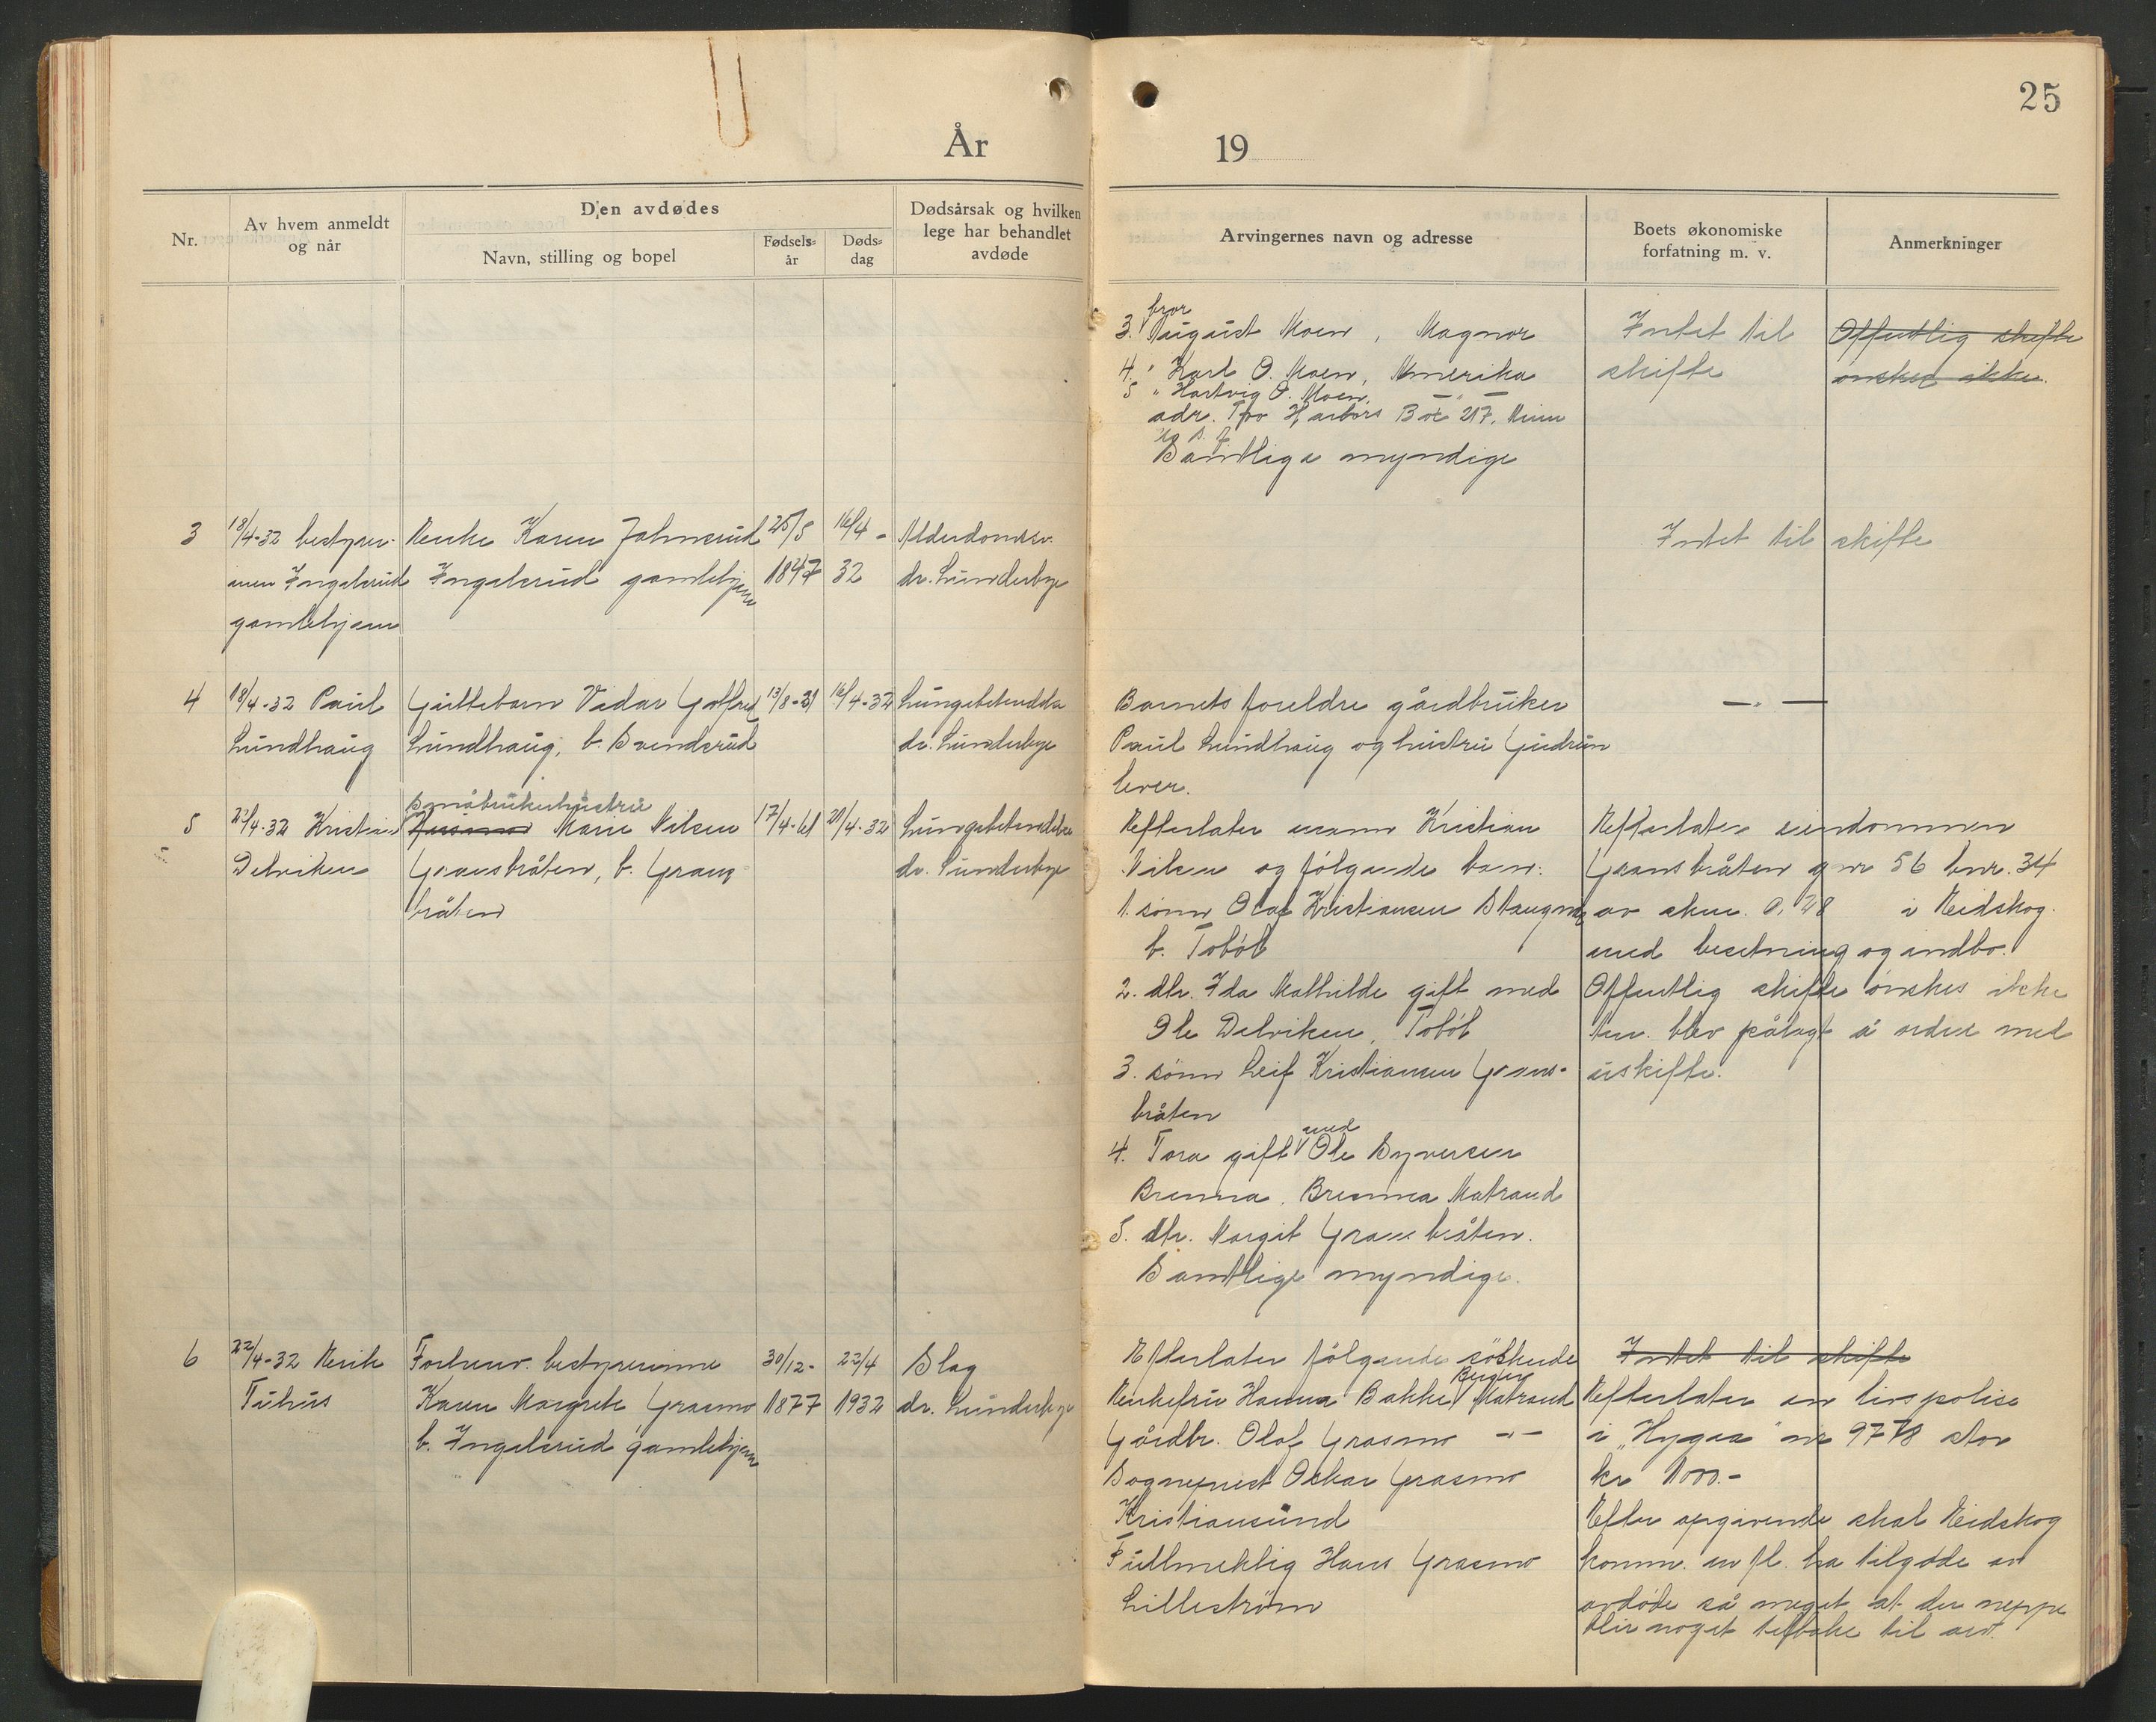 25
År 19
Nr.
Av hvem anmeldt
og når
Den avdødes
Navn, stilling og bopel
Fødsels-
år
Døds-
dag
Dødsårsak og hvilken
lege har behandlet
avdøde
Arvingernes navn og adresse
Boets økonomiske
forfatning m. v.
Anmerkninger
bror
3. August Moen, Magnor
4. " Karl O. Moen, Amerika
5 " Hartvig O. Moen, — " —
adr. Two Harbors Box 217, Minn
Samtlige myndige
Intet til
skifte
Offentlig skifte
ønskes ikke.
3
18/4-32 bestyrer-
innen Ingelsrud
gamlehjem
Enke Karen Johnsrud
Ingelsrud gamlehjem
25/5
1847
16/4 -
32
Alderdomssv.
dr. Lunderbye
Intet til skifte
4
18/4-32 Paul
Lundhaug
Guttebarn Vidar Gotfred
Lundhaug, b. Svendsrud
13/8-31
16/4-32
Lungebetendelse
dr. Lunderbye
Barnets foreldre gårdbruker
Paul Lundhaug og hustru Gudrun
lever.
— " —
5
21/4-32 Kristian
Delviken
Småbrukerhustru
Marie Nilsen
Gransbråten, b. Grans-
bråten
17/4-61
20/4-32
Lungebetendelse
dr. Lunderbye
Efterlater mann Kristian
Nilsen og følgende barn:
1. sønn Olaf Kristiansen
b. Tobøl
2. dtr. Ida Mathilde gift med
Ole Delviken, Tobøl
3. sønn Leif Kristiansen Grans-
bråten
4. Tora gift med Ole Syversen
Brenna, Brenna Matrand
5. dtr. Margit Gransbråten.
Samtlige myndige.
Efterlater eiendommen
Gransbråten gnr 56 bnr. 34
av skm. 0,48 i Eidskog
med besetning og indbo.
Offentlig skifte ønskes ikke
blev pålagt å ordne med
uskifte.
6
22/4-32 Erik
Tuhus
Forhenv. bestyrerinne
Karen Margrete Grasmo
b. Ingelsrud gamlehjem
30/12-
1877
22/4
1932
Slag
dr. Lunderbye
Efterlater følgende søskende
Enkefru Hanna Bakke, Berger Matrand
Gårdbr. Olof Grasmo — " —
Sogneprest Oskar Grasmo
Kristiansund
Fullmektig Hans Grasmo
Lillestrøm
Intet til skifte
Efterlater en livspolise
i "Hygea" nr 9778 stor
kr 1000.-
Efter opgivende skal Eidskog
komm. m fl. ha tilgode av
avdøde så meget at der neppe
blir noget tilbake til arv.